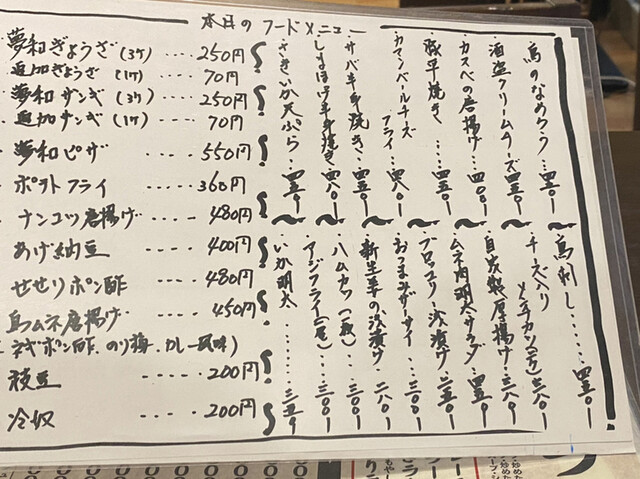 本日のフードメニュー
夢和ぎょうざ(3ケ) ---- 250円
追加ぎょうざ(1ケ) ---- 70円
夢和ザンギ(3ケ) ---- 250円
追加ザンギ(1ケ) ---- 70円
夢和ピザ ---- 550円
ポテトフライ ---- 360円
ナンコツ唐揚げ ---- 480円
あげ納豆 ---- 400円
せせりポン酢 ---- 480円
鳥ムネ唐揚げ ---- 450円
ネギポン酢、のり梅、カレー風味)
枝豆 ---- 200円
冷奴 ---- 200円
鳥のなめろう…四五〇ー
酒盗クリームチーズ…四五〇ー
カスベの唐揚げ…四〇〇ー
豚平焼き…四五〇ー
カマンベールチーズフライ…四八〇ー
サバ串焼き…四五〇ー
しまほっけ串焼き…四八〇ー
さきいか天ぷら…四五〇ー
鳥刺し……四五〇ー
チーズ入りメンチカツ
自家製厚揚げ…三八〇ー
ムネ肉明太サラダ…四五〇ー
ブロッコリー浅漬け…三五〇ー
おつまみザーサイ…三〇〇ー
新生姜の浅漬け…二八〇ー
ハムカツ(一枚)…三〇〇ー
アジフライ(一尾)…三〇〇ー
いか明太……三五〇ー